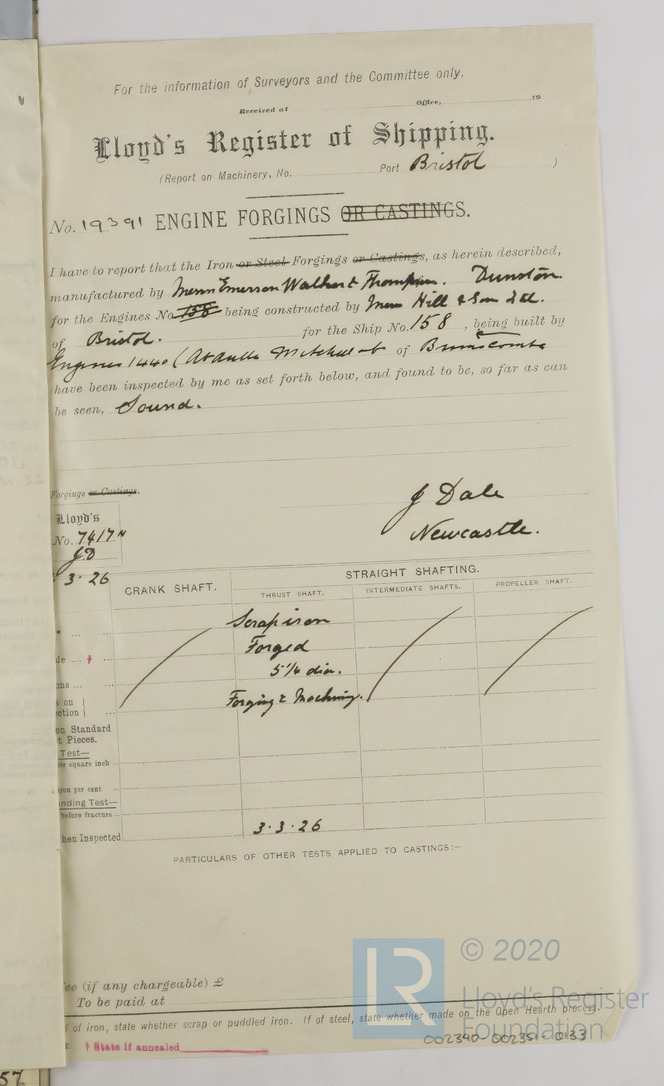 For the information of Surveyors and the Committee only.
Received at Office, 19
Lloyd's Register of Shipping.
(Report on Machinery, No. Port Bristol )
No. 19391 ENGINE FORGINGS OR CASTINGS.
I have to report that the Iron or Steel Forgings or Castings, as herein described,
manufactured by Messrs Emerson Walker & Thompson. Dunston
for the Engines No. 158 being constructed by Messrs Hill & Son Ltd.
of Bristol. for the Ship No. 158, being built by
Engines 1440 (Abdulla Mitchell of Brimscombe
have been inspected by me as set forth below, and found to be, so far as can
be seen, Sound.
Forgings or Castings.
J Dale
Newcastle.
Lloyd's
No. 7417 N
J.D
3.26
STRAIGHT SHAFTING.
CRANK SHAFT. THRUST SHAFT. INTERMEDIATE SHAFTS. PROPELLER SHAFT.
Scrap iron
de ... † Forged
5 1/4 dia.
ons ...
s on Forging & Machining.
ction
on Standard
t Pieces.
Test—
er square inch
on per cent
nding Test—
before fracture
hen Inspected 3.3.26
PARTICULARS OF OTHER TESTS APPLIED TO CASTINGS:—
ee (if any chargeable) £
To be paid at
f of iron, state whether scrap or puddled iron. If of steel, state whether made on the Open Hearth process.
r. † State if annealed
002340-002351-0133
57
LR © 2020
Lloyd's Register
Foundation